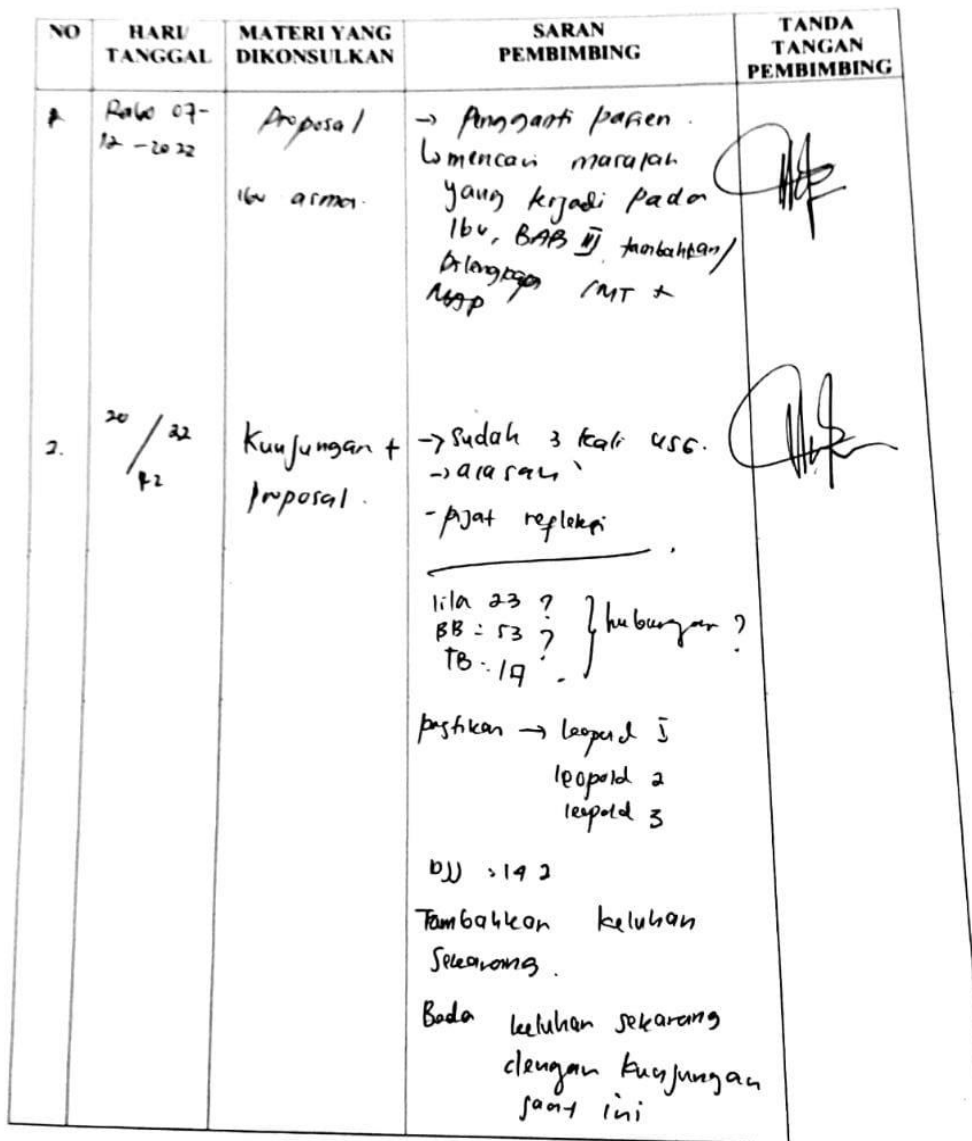 NO HARI/ TANGGAL MATERI YANG DIKONSULKAN SARAN PEMBIMBING TANDA TANGAN PEMBIMBING
Rabo 07-
12-2022
Proposal
ibu asma.
→ Pengganti pasien.
↳ mencari masalah
yang terjadi pada
Ibu, BAB III tambahkan/
Dilengkapi IMT +
MAP
2.
20/12 22
Kunjungan +
proposal.
→ Sudah 3 kali USG.
→ alasan
- pijat refleksi
lila 23 ?
BB : 53 ?
} hubungan ?
TB :
pastikan → leopold I
leopold 2
leopold 3
DJJ : 142
Tambahkan keluhan
Sekarang.
Beda keluhan sekarang
dengan kunjungan
saat ini